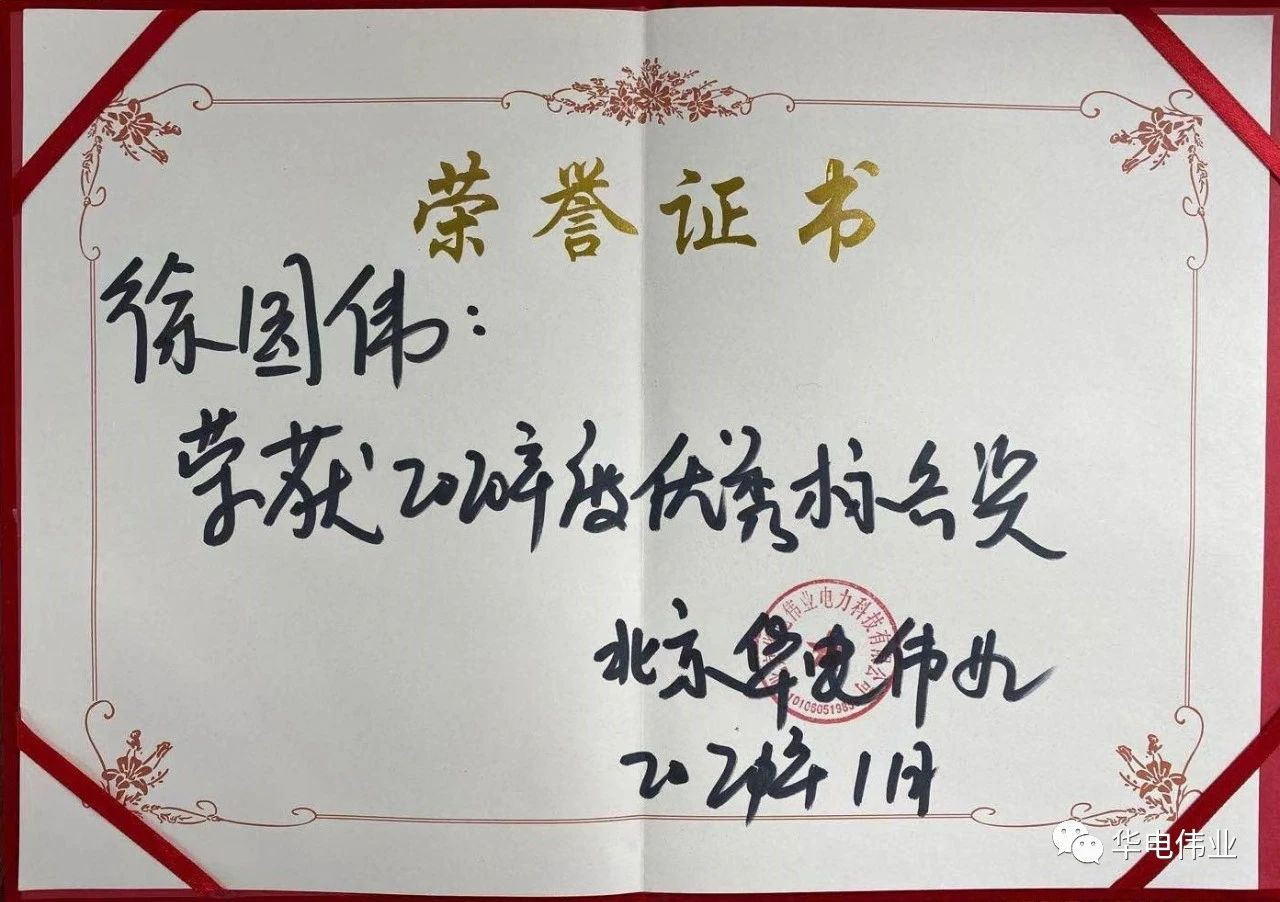 荣誉证书
徐国伟：
荣获2020年度优秀标兵奖
伟业电力科技有限公司
北京华电伟业
2021年1月
华电伟业